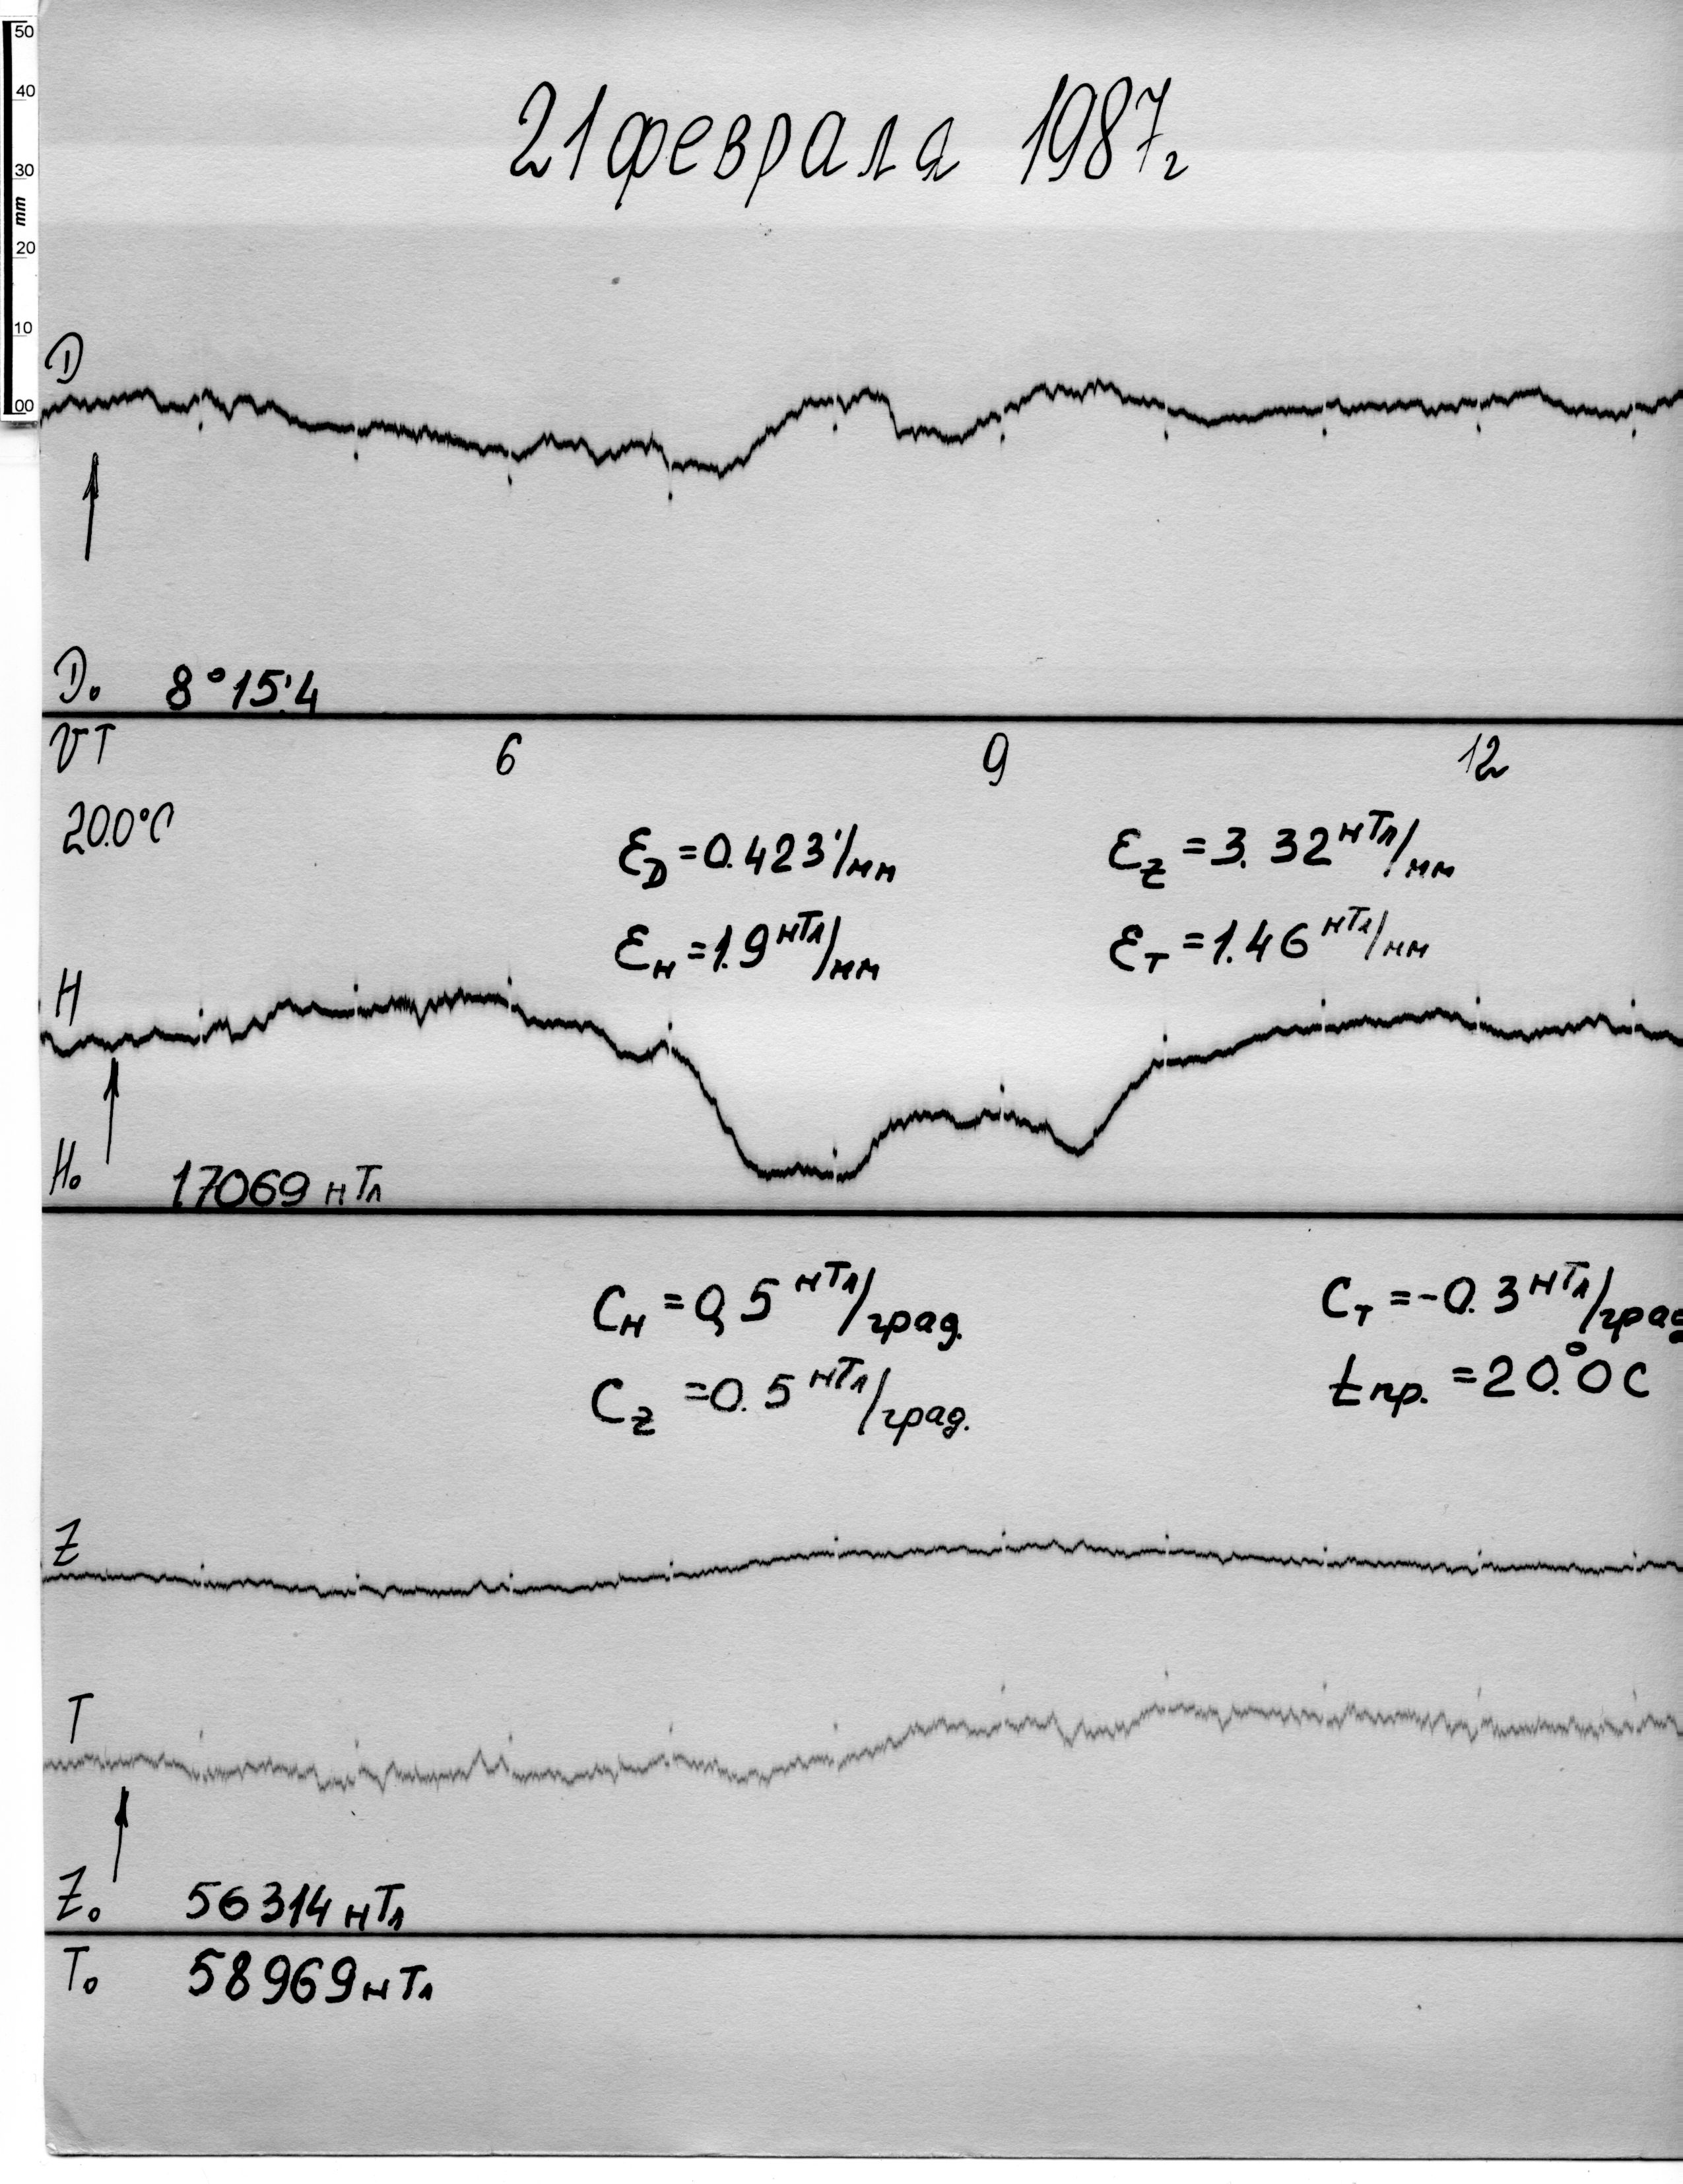 50
40
30
mm
20
10
00
21 февраля 1987г
D
D₀ 8°15'.4
UT 6 9 12
20.0°C
ε_D = 0.423'/мм ε_Z = 3.32 нТл/мм
ε_H = 1.9 нТл/мм ε_T = 1.46 нТл/мм
H
H₀ 17069 нТл
C_H = 0,5 нТл/град. C_T = -0.3 нТл/град
C_Z = 0.5 нТл/град. t пр. = 20.°0 C
Z
T
Z₀ 56314 нТл
T₀ 58969 нТл